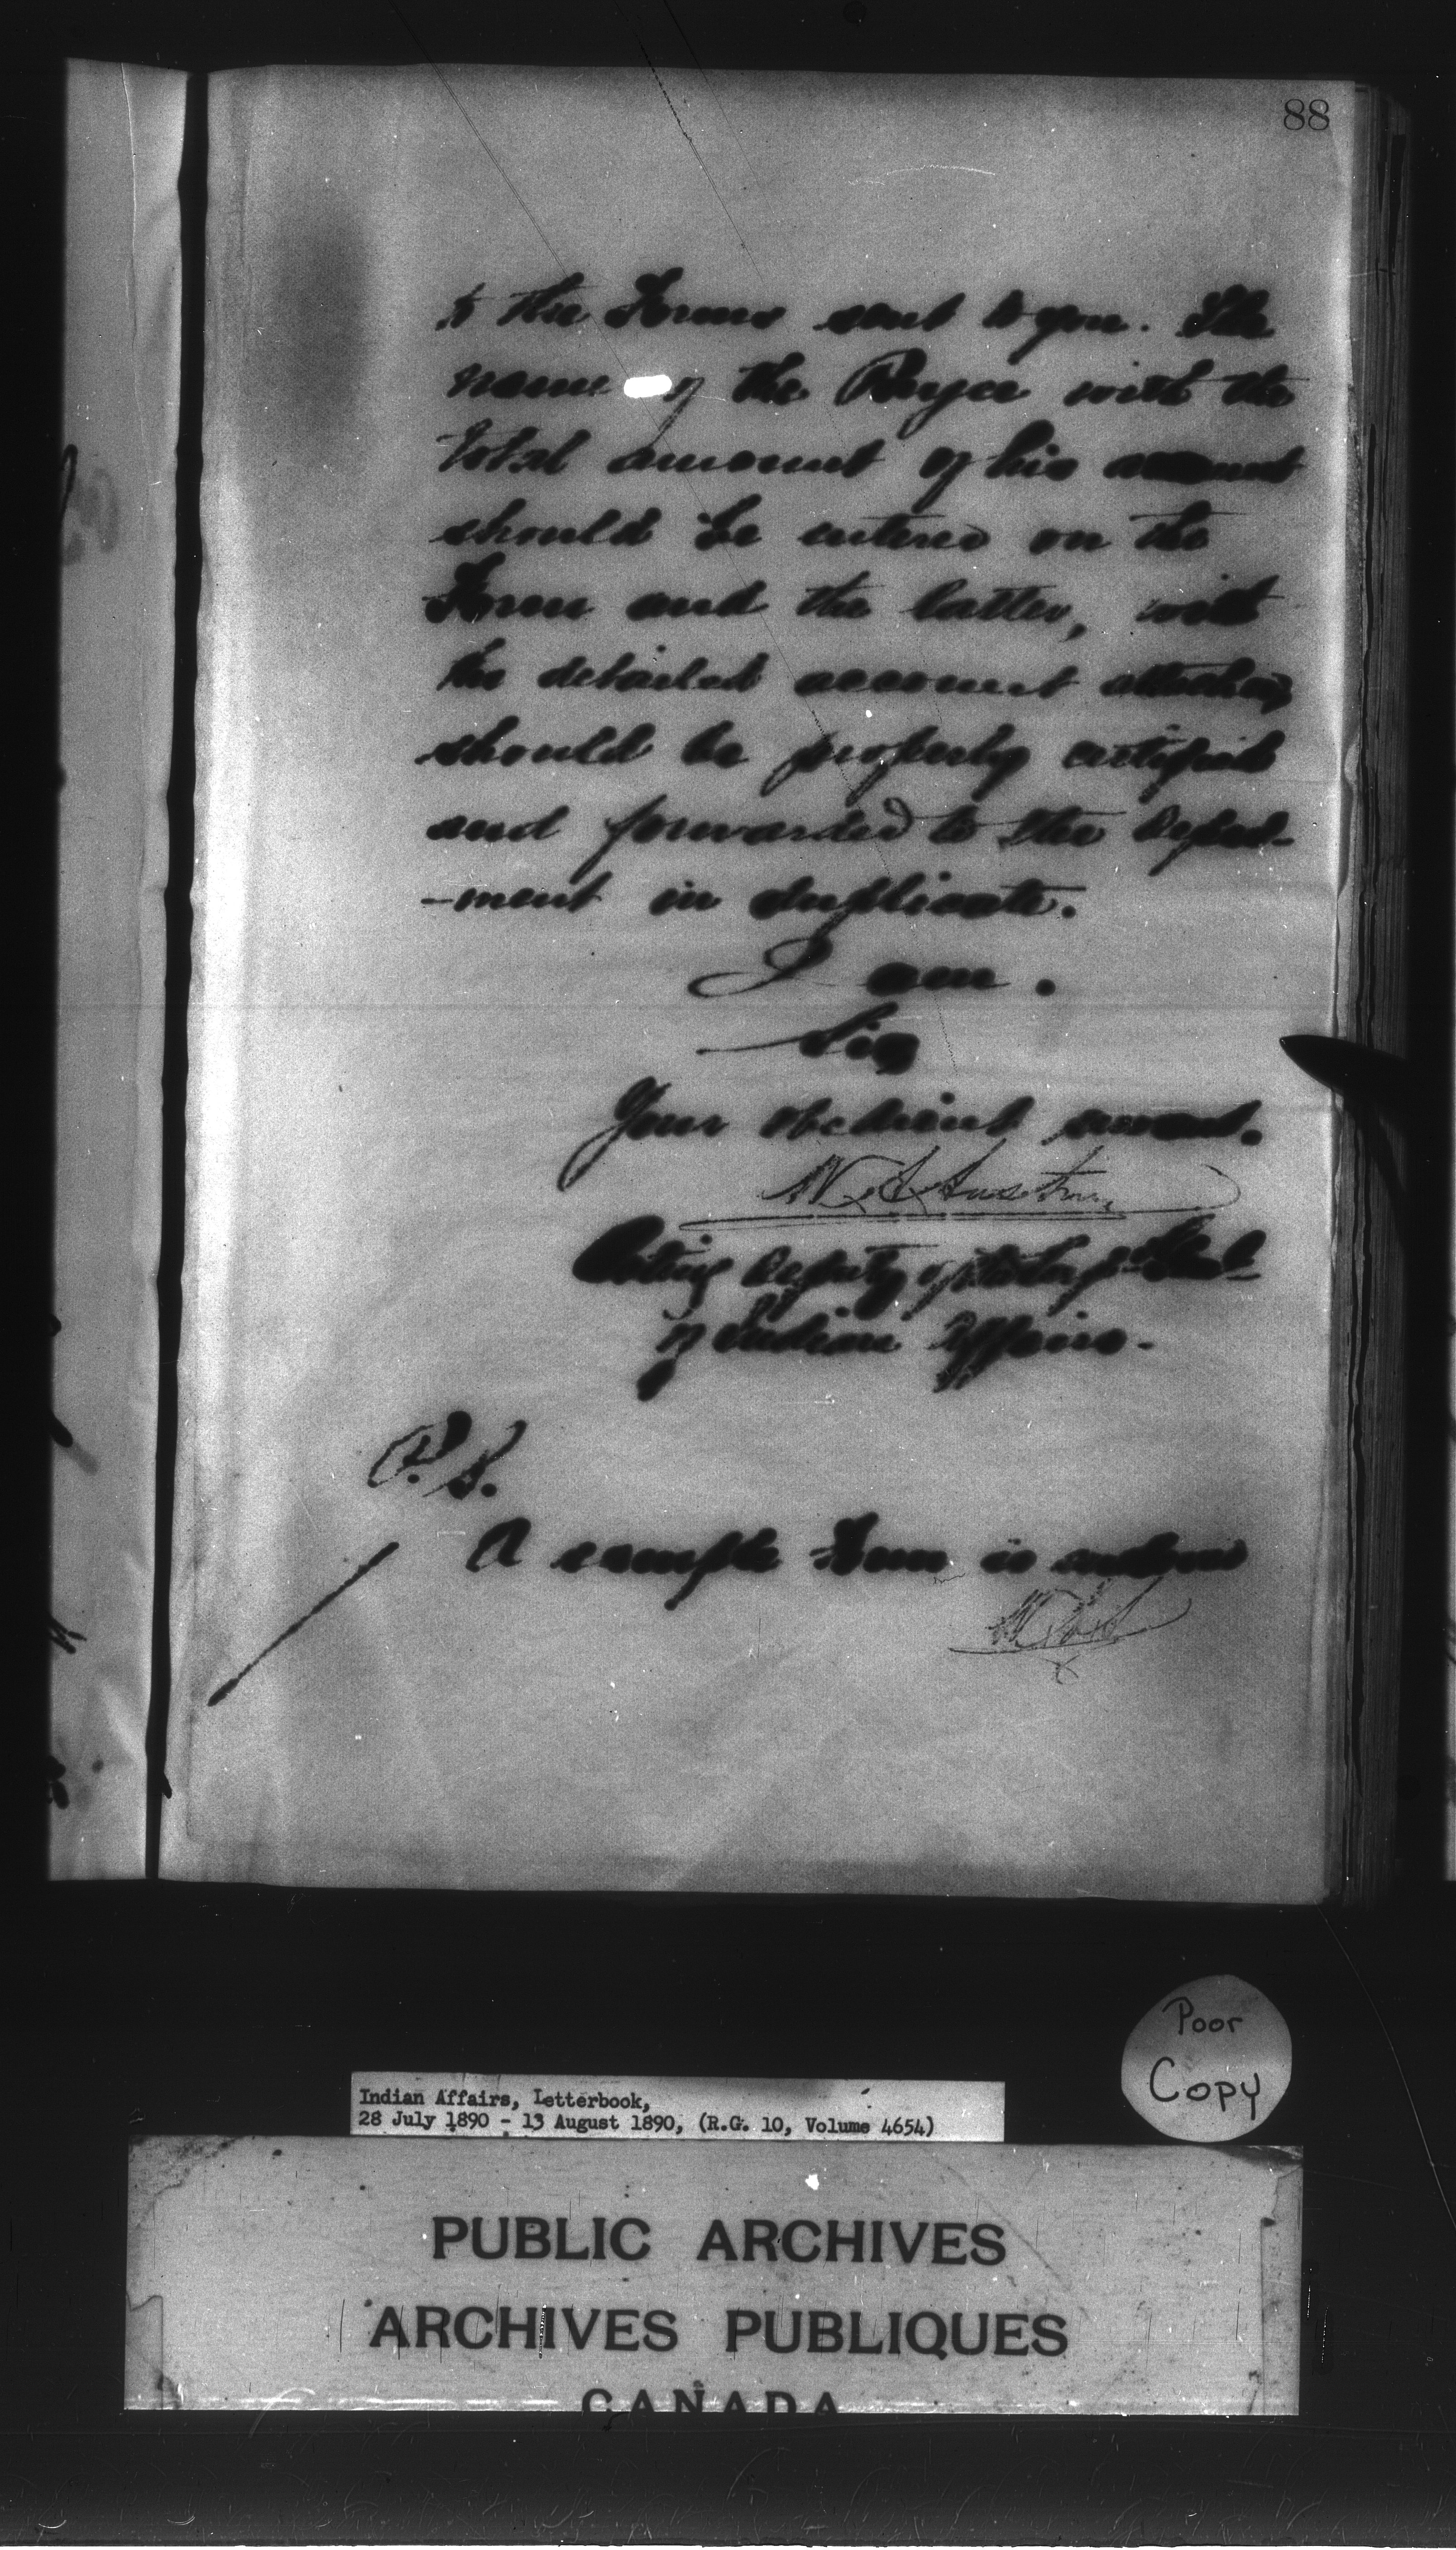 88
to the Forms sent to you. The
name of the Payee with the
total amount of his account
should be entered on the
Form and the latter, with
the detailed account attached
should be properly certified
and forwarded to the Depart-
-ment in duplicate.
I am.
Sir
Your obedient servant.
Acting Deputy of the Supt Genl
of Indian Affairs.
P.S.
A sample Form is enclosed
Poor
Copy
Indian Affairs, Letterbook,
28 July 1890 - 13 August 1890, (R.G. 10, Volume 4654)
PUBLIC ARCHIVES
ARCHIVES PUBLIQUES
CANADA